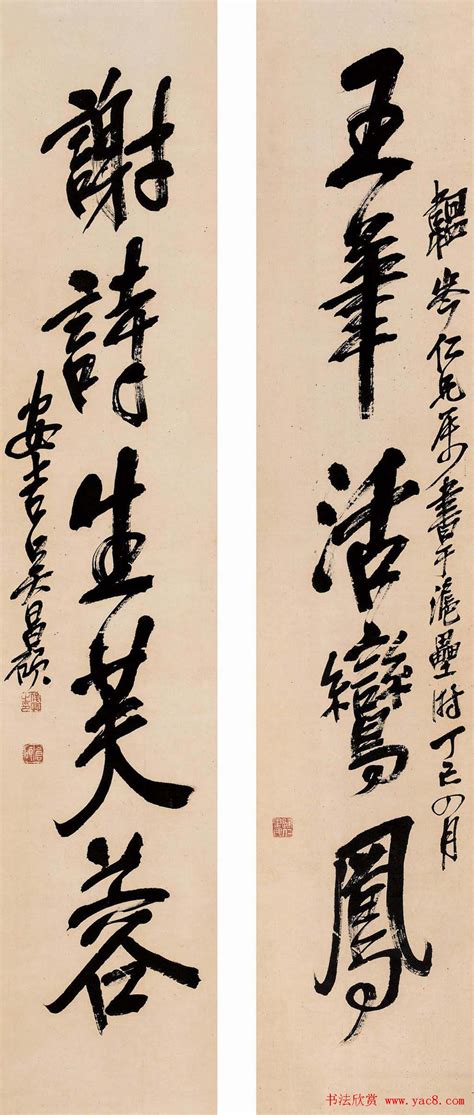 韞仁兄屬書于滬壘時丁巳四月
王筆活鸞鳳
謝詩生芙蓉
安吉吳昌碩
书法欣赏 www.yac8.com